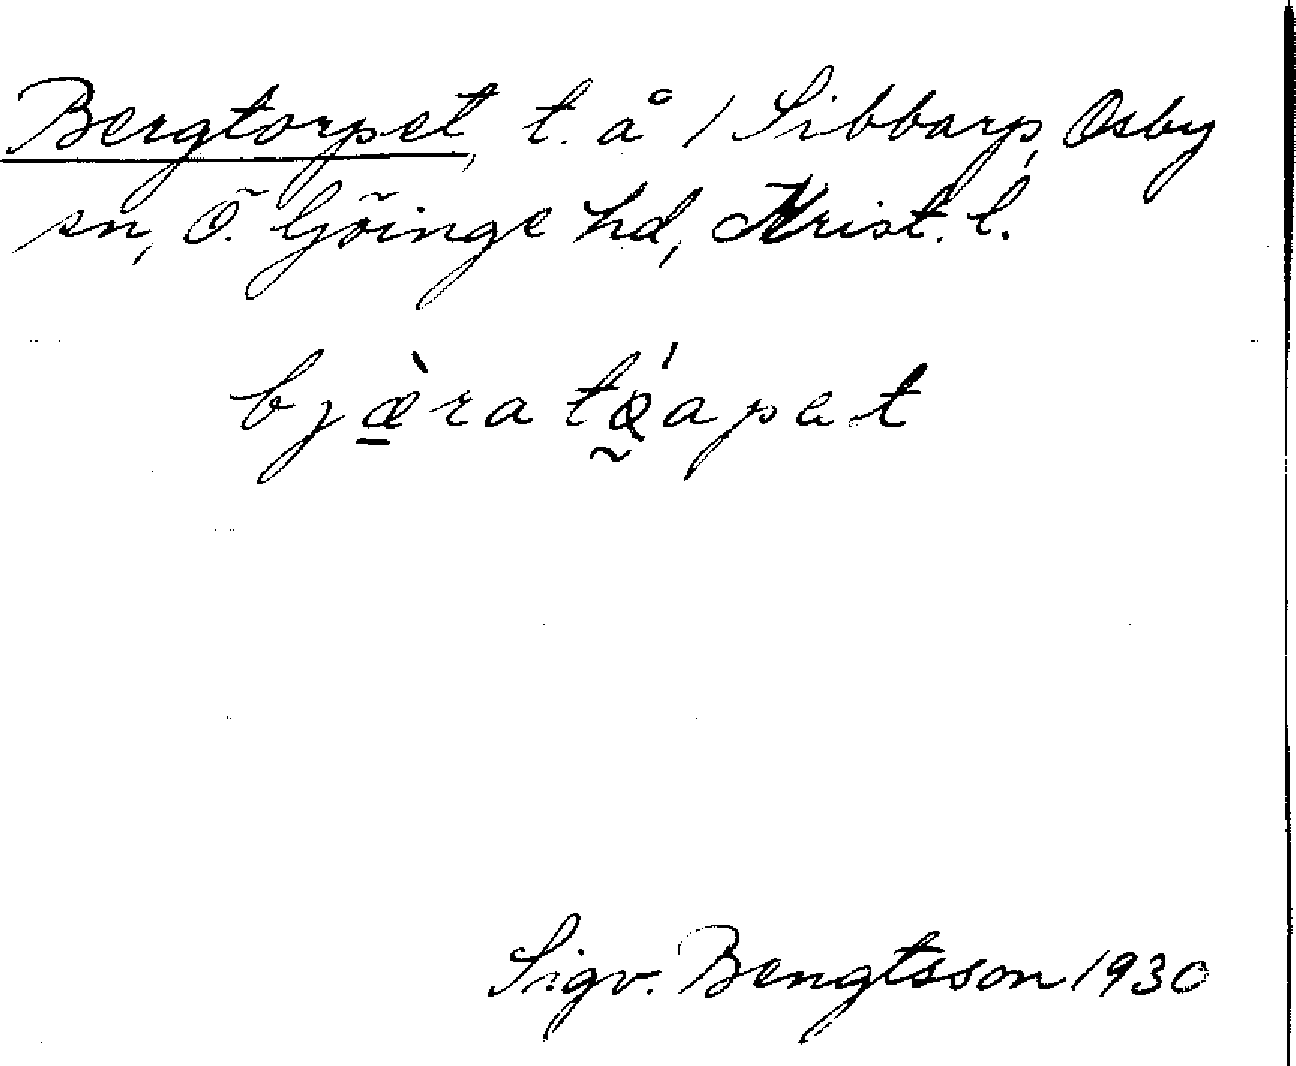 Bergtorpet, t. å 1 Sibbarp, Osby
sn, Ö. Göinge hd, Krist. l.
bjæ̠̀ra tǽ̰apet
Sigv. Bengtsson 1930